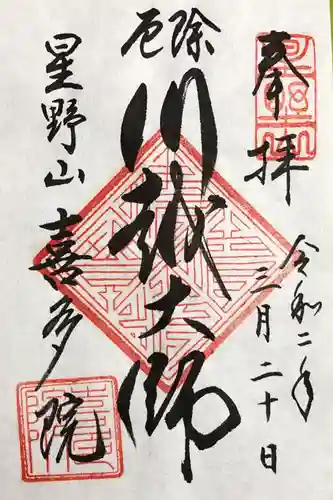 奉拝
令和二年
三月二十日
厄除
川越大師
星野山
喜多院